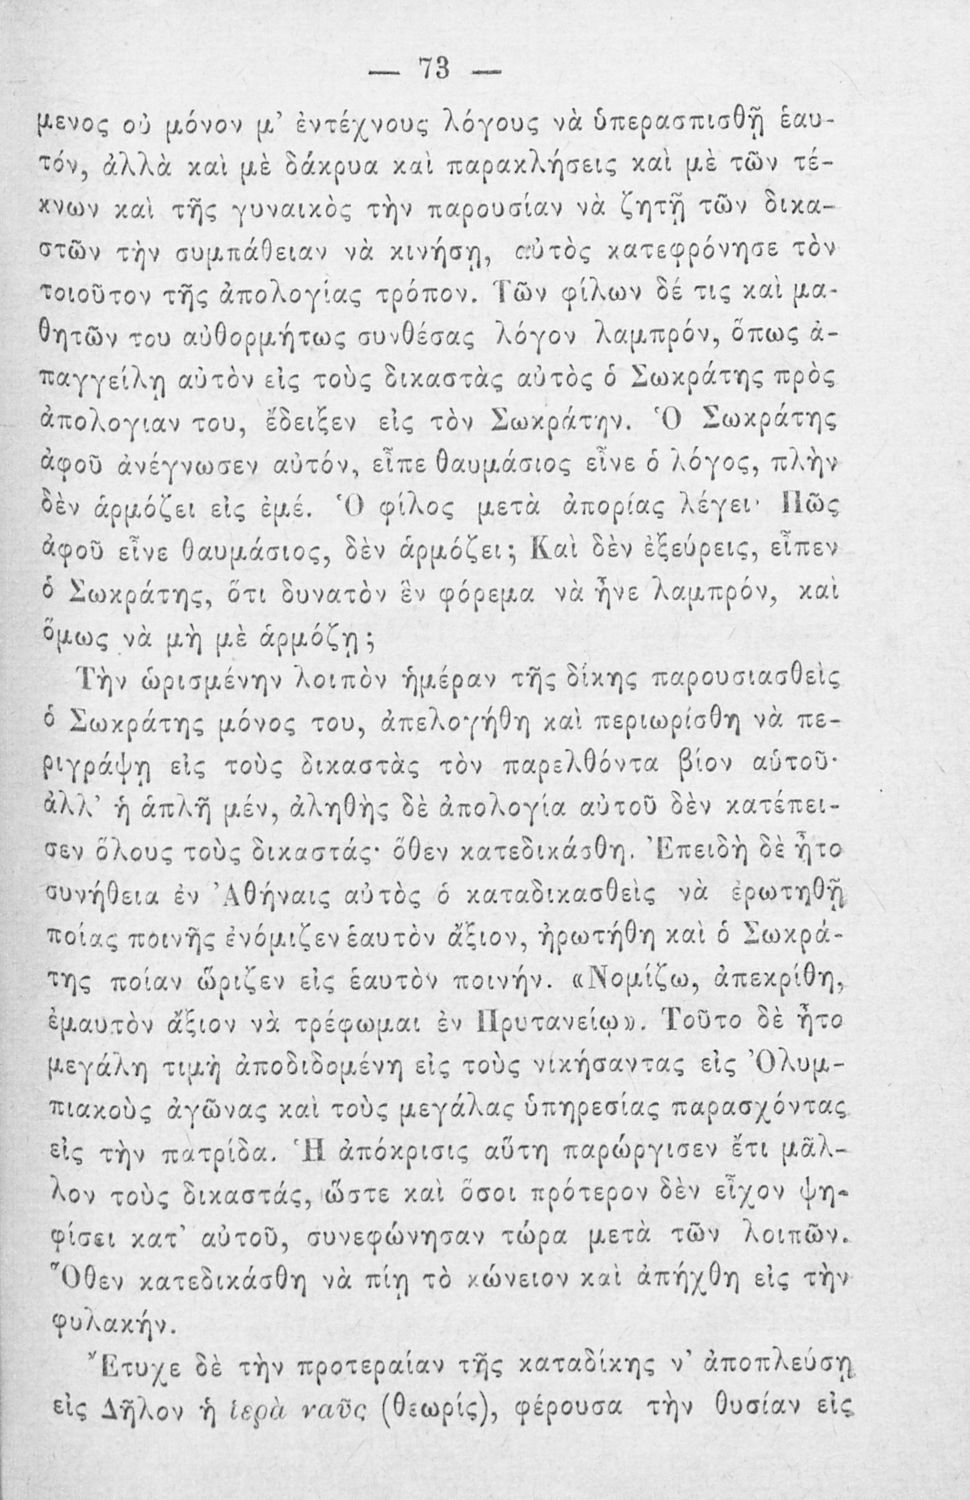 — 73 —
μενος οὐ μόνον μ’ ἐντέχνους λόγους νὰ ὑπερασπισθῇ ἑαυ-
τόν, ἀλλὰ καὶ μὲ δάκρυα καὶ παρακλήσεις καὶ μὲ τῶν τέ-
κνων καὶ τῆς γυναικὸς τὴν παρουσίαν νὰ ζητῇ τῶν δικα-
στῶν τὴν συμπάθειαν νὰ κινήσῃ, αὐτὸς κατεφρόνησε τὸν
τοιοῦτον τῆς ἀπολογίας τρόπον. Τῶν φίλων δέ τις καὶ μα-
θητῶν του αὐθορμήτως συνθέσας λόγον λαμπρόν, ὅπως ἀ-
παγγείλῃ αὐτὸν εἰς τοὺς δικαστὰς αὐτὸς ὁ Σωκράτης πρὸς
ἀπολογιαν του, ἔδειξεν εἰς τὸν Σωκράτην. Ὁ Σωκράτης
ἀφοῦ ἀνέγνωσεν αὐτόν, εἶπε θαυμάσιος εἶνε ὁ λόγος, πλὴν
δὲν ἁρμόζει εἰς ἐμέ. Ὁ φίλος μετὰ ἀπορίας λέγει· Πῶς
ἀφοῦ εἶνε θαυμάσιος, δὲν ἁρμόζει; Καὶ δὲν ἐξεύρεις, εἶπεν
ὁ Σωκράτης, ὅτι δυνατὸν ἓν φόρεμα νὰ ἦνε λαμπρόν, καὶ
ὅμως νὰ μὴ μὲ ἁρμόζῃ;
Τὴν ὡρισμένην λοιπὸν ἡμέραν τῆς δίκης παρουσιασθεὶς
ὁ Σωκράτης μόνος του, ἀπελογήθη καὶ περιωρίσθη νὰ πε-
ριγράψῃ εἰς τοὺς δικαστὰς τὸν παρελθόντα βίον αὑτοῦ·
ἀλλ’ ἡ ἁπλῆ μέν, ἀληθὴς δὲ ἀπολογία αὐτοῦ δὲν κατέπει-
σεν ὅλους τοὺς δικαστάς· ὅθεν κατεδικάσθη. Ἐπειδὴ δὲ ἦτο
συνήθεια ἐν Ἀθήναις αὐτὸς ὁ καταδικασθεὶς νὰ ἐρωτηθῇ
ποίας ποινῆς ἐνόμιζεν ἑαυτὸν ἄξιον, ἠρωτήθη καὶ ὁ Σωκρά-
της ποίαν ὥριζεν εἰς ἑαυτὸν ποινήν. «Νομίζω, ἀπεκρίθη,
ἐμαυτὸν ἄξιον νὰ τρέφωμαι ἐν Πρυτανείῳ». Τοῦτο δὲ ἦτο
μεγάλη τιμὴ ἀποδιδομένη εἰς τοὺς νικήσαντας εἰς Ὀλυμ-
πιακοὺς ἀγῶνας καὶ τοὺς μεγάλας ὑπηρεσίας παρασχόντας
εἰς τὴν πατρίδα. Ἡ ἀπόκρισις αὕτη παρώργισεν ἔτι μᾶλ-
λον τοὺς δικαστάς, ὥστε καὶ ὅσοι πρότερον δὲν εἶχον ψη-
φίσει κατ’ αὐτοῦ, συνεφώνησαν τώρα μετὰ τῶν λοιπῶν.
Ὅθεν κατεδικάσθη νὰ πίῃ τὸ κώνειον καὶ ἀπήχθη εἰς τὴν
φυλακήν.
Ἔτυχε δὲ τὴν προτεραίαν τῆς καταδίκης ν’ ἀποπλεύσῃ
εἰς Δῆλον ἡ ἱερὰ ναῦς (θεωρίς), φέρουσα τὴν θυσίαν εἰς